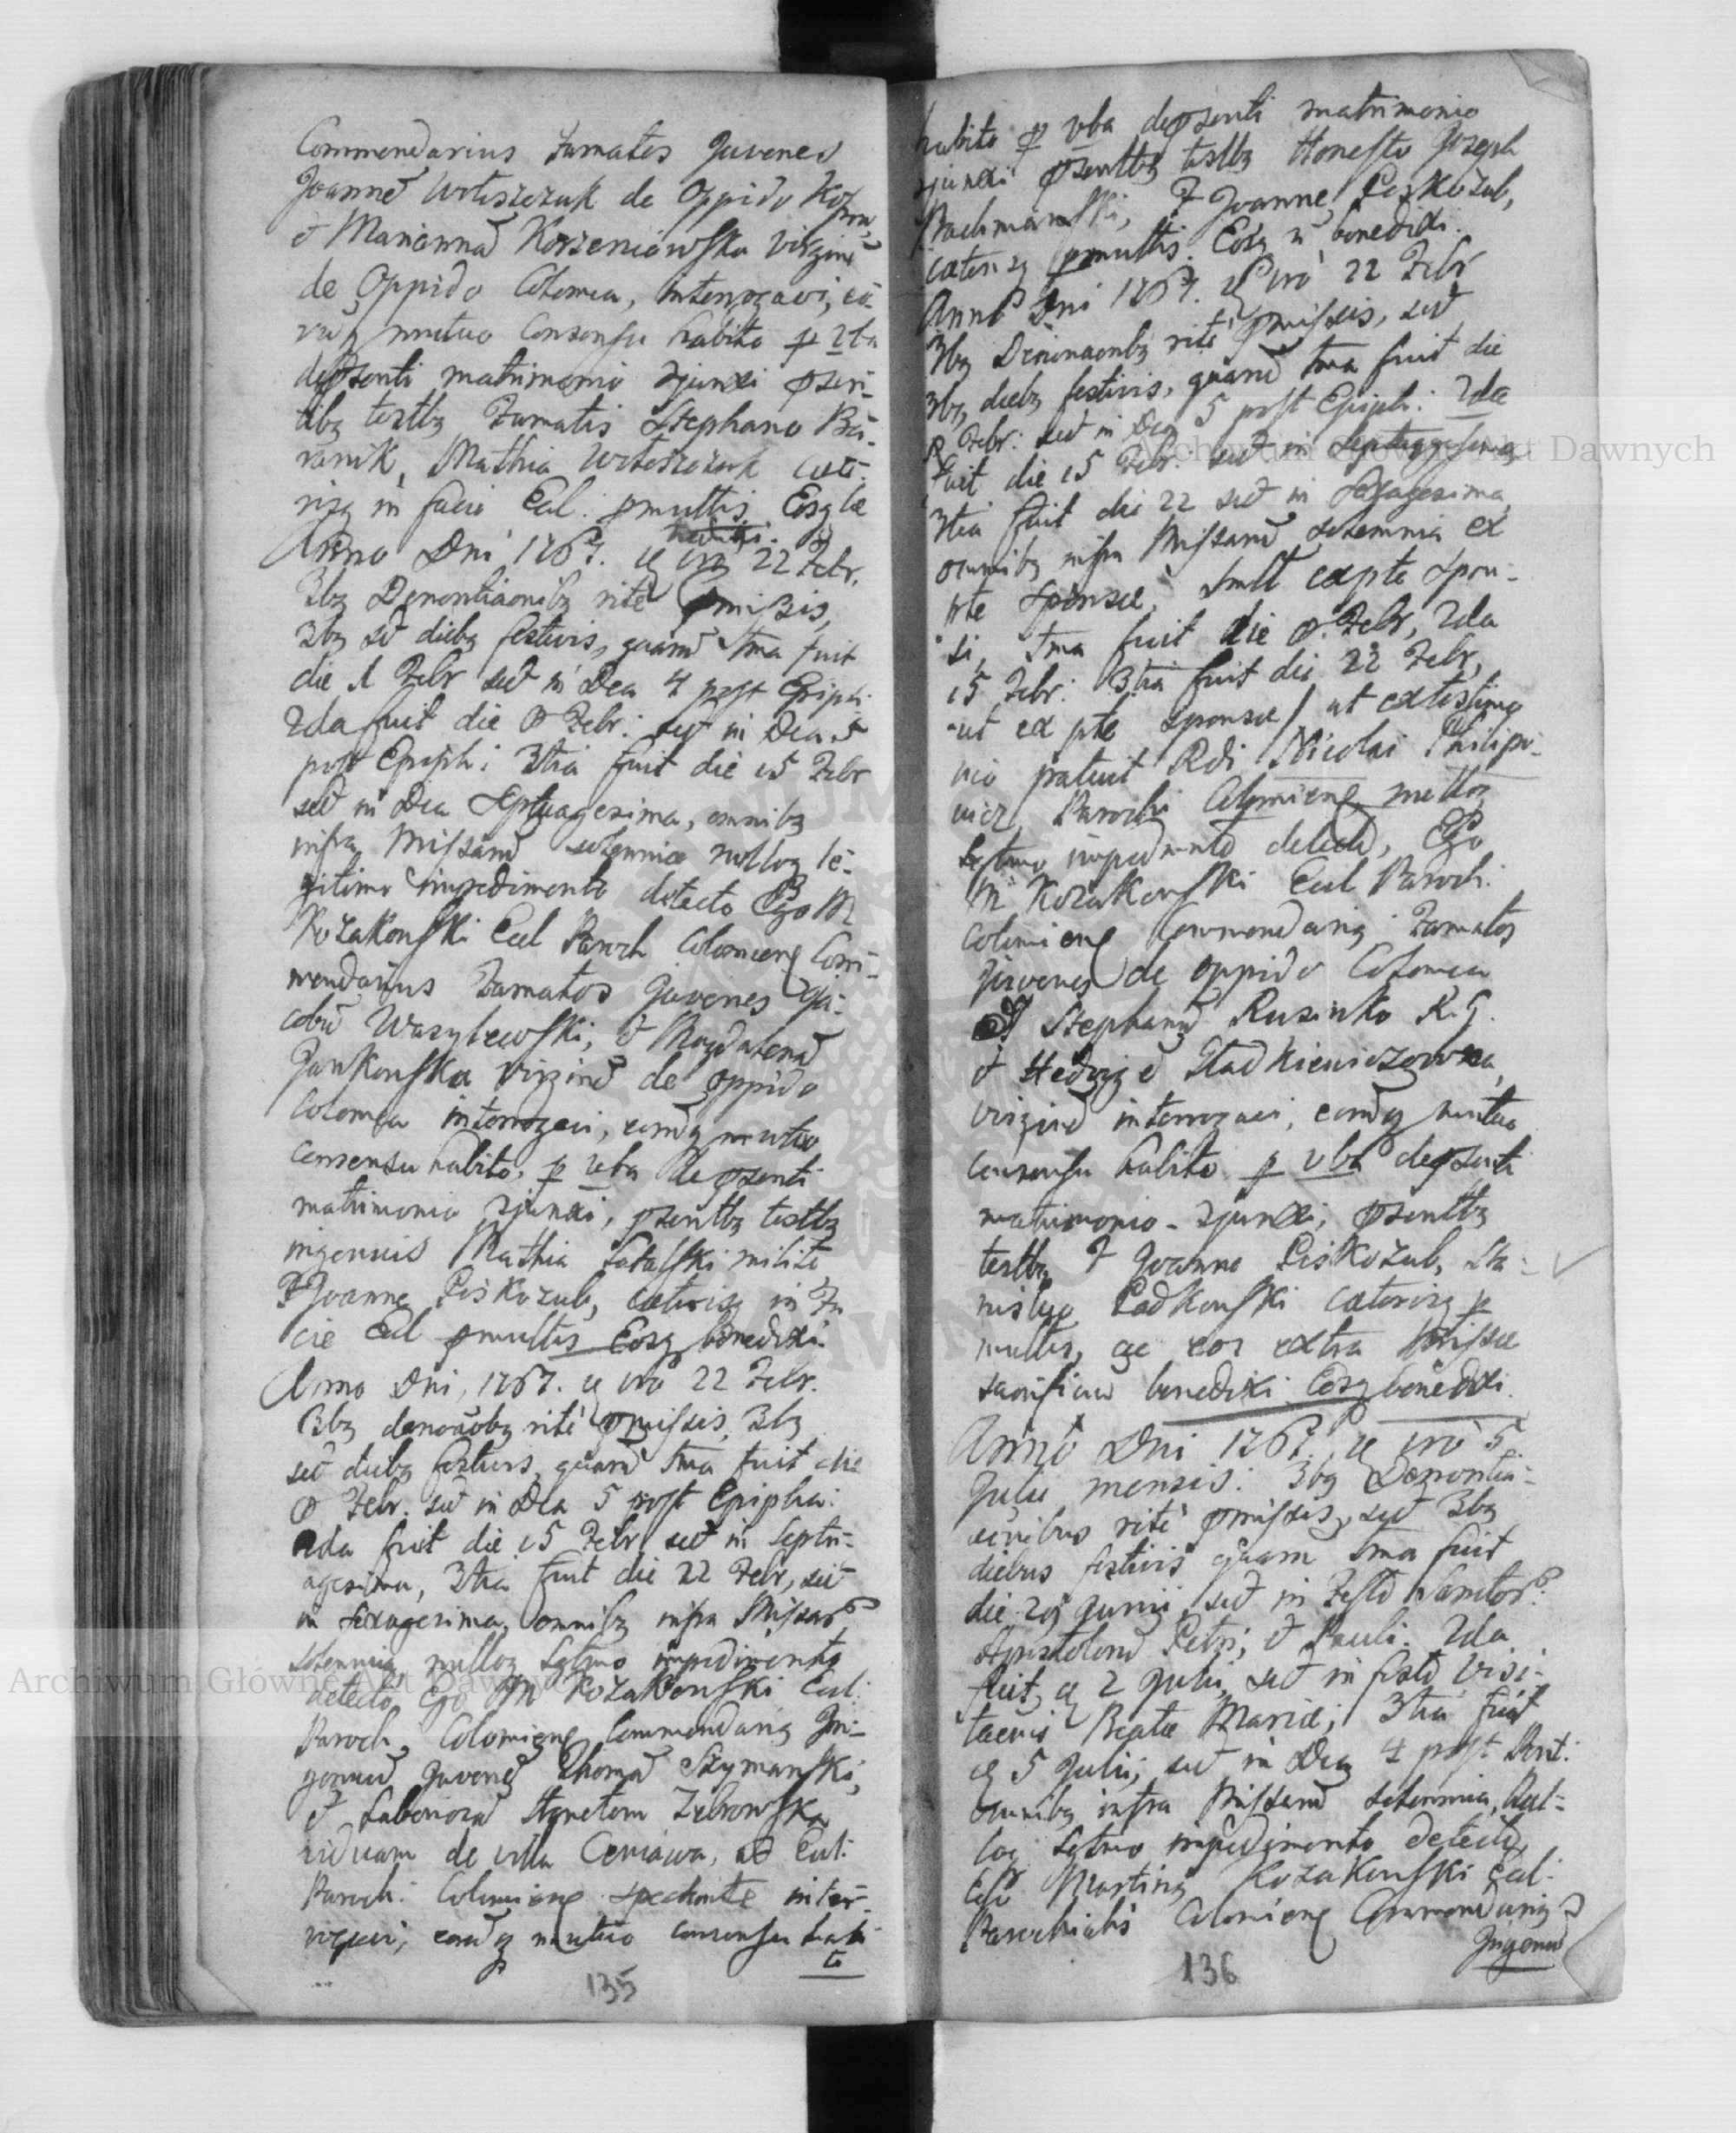 Commendarius Famatos Juvenes
Joannē Wołuszczuk de Oppido
et Mariannā Korzeniowska Virginē
de Oppido Colomea, interrogavi, eō-
rūq mutuo Consensu habito p vba
de pnti matrimonio 2junxi psen-
tibq testbq Famatis Stephano Ba-
ranik, Mathia caete-
risq in facie Eccl: pmultis Eosq be
nedixi.
Anno Dni 1767. 22 Febr.
3bq Denontiaonibq ritè pmissis,
3bq sc̄ diebq festivis, quarū 1ma fuit
die 1 Febr sc̄ in Dca 4 post Epiph:
2da fuit die 8 Febr: sc̄ in Dca 5
post Epiph: 3tia fuit die 15 Febr
sc̄ in Dca Septuagesima, omnibq
infra Missarū solemnia nulloq le-
gitimo impedimento detecto Ego M
Kozakowski Eccl Paroch Colomiens Com-
mendarius Famatos Juvenes Ja-
cobū Wasylewski, et Magdalenā
Jankowska Virginē de oppido
Colomea interrogavi, eorūq mutuo
Consensu habito, p vba de psenti
matrimonio 2junxi, psentbq testbq
ingenuis Mathia milite
F Joanne Piskozub, caeterisq in Fa
cie Eccl pmultis Eosq benedixi.
Anno Dni, 1767. 22 Febr.
3bq denoaōbq ritè pmissis, 3bq
sc̄ diebq festivis quarū 1ma fuit die
8 Febr. sc̄ in Dca 5 post Epipha:
2da fuit die 15 Febr sc̄ in Septu-
agesima, 3tia fuit die 22 Febr, sc̄
in Sexagesima, omnibq infra Missarū
solemnia, nulloq legtmo impedimento
detecto, Ego M Kozakowski Eccl:
Paroch: Colomiens Commendariq In-
genuū Juvenē Thomā Szymanski,
et Laboriosā Agnetem Zebrowska
viduam de villa Ceniawa, ad Eccl:
Paroch: Colomiens spectante inter-
rogavi, eorūq mutuo consensu habi
to
135
habito p vba de psenti matrimonio
2junxi psentbq testbq Honesto Joseph
Bachminski, F Joanne Piskozub,
caeterisq pmultis. Eosq benedixi.
Anno Dni 1767. 22 Febr
3bq Denonaonbq ritè pmissis, sc̄
3bq diebq festivis, quarū 1ma fuit die
8 Febr: sc̄ in Dca 5 post Epiph: 2da
fuit die 15 Febr: sc̄ in Septuagesima
3tia fuit die 22 sc̄ in Sexagesima
omnibq infra Missarū solemnia ex
pte Sponsae, simlt ex pte Spon-
si, 1ma fuit die 8 Febr, 2da
15 Febr: 3tia fuit die 22 Febr,
ut ex pte sponsae / ut ex testimo
nio patuit Rdi Nicolai Philipo-
wicz Parochi nulloq
legtmo impedmnto detecto, Ego
M Kozakowski Eccl Paroch:
Colomiens Commendariq Famatos
Juvenes de oppido Colomea
Stephanū Rusinko R. G.
et Hedvigē
virginē interrogavi, eorūq mutuo
consensu habito p vba de psenti
matrimonio 2junxi, psentbq
testbq F Joanne Piskozub, Sta-
nislao Ladkowski caeterisq p
multis, eos extra Missae
sacrificiū benedixi Eosq benedixi.
Anno Dni 1767. 5
Julii mensis: 3bq Denontia-
onibus ritè pmissis, sc̄ 3bq
diebus festivis quarum 1ma fuit
die 29 Junii, sc̄ in Festo Sanctor:
Apostolorū Petri, et Pauli: 2da
fuit, 2 Julii, sc̄ in festo Visi-
taonis Beatae Mariae, 3tia fuit
5 Julii, sc̄ in Dca 4 post Pent:
omnibq infra Missarū solemnia, Nul-
loq legtmo impedimento detecto
Ego Martinq Kozakowski Eccl:
Parochialis Colomiens Commendariq
Ingenuū
136
Archiwum Główne Akt Dawnych
Archiwum Główne Akt Dawnych